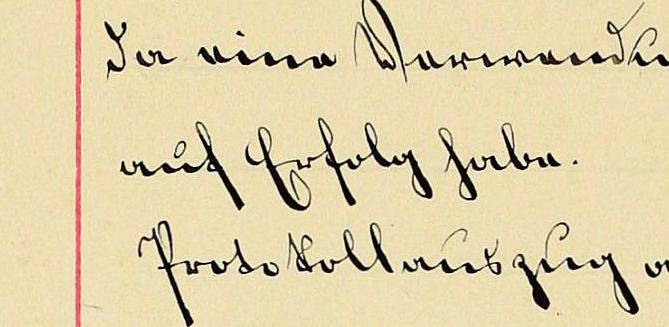 Da eine Verwendu
auf Erfolg habe.
Protokollauszug a